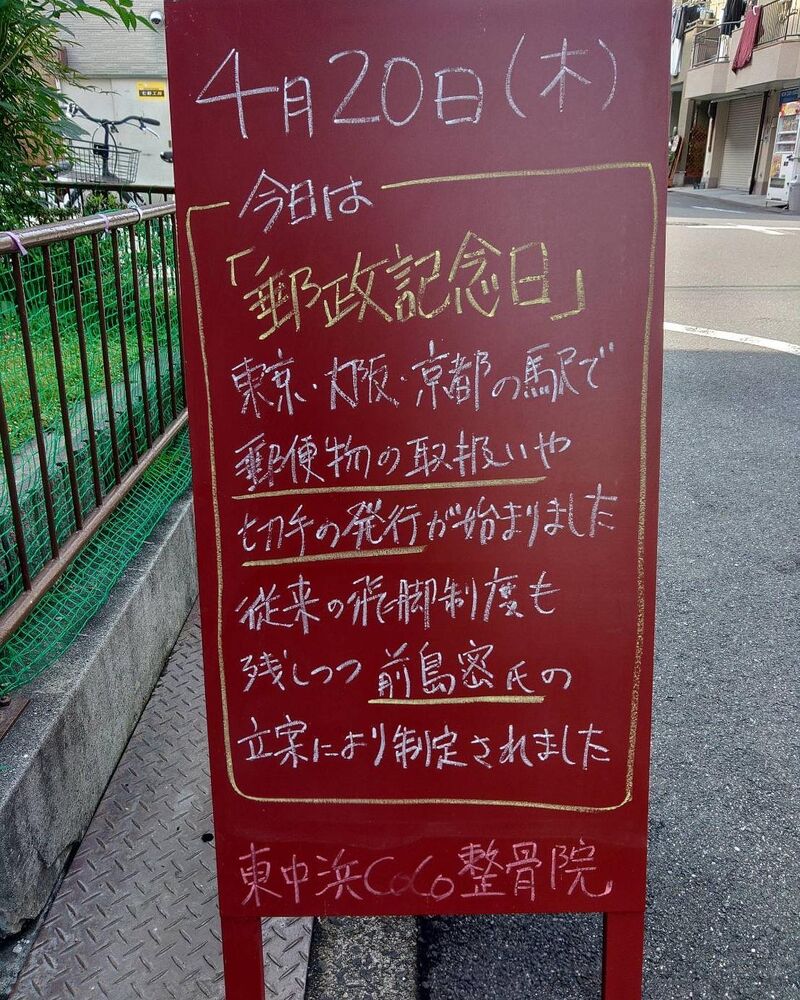 4月20日(木)
今日は
「郵政記念日」
東京・大阪・京都の駅で
郵便物の取扱いや
切手の発行が始まりました
従来の飛脚制度も
残しつつ前島密氏の
立案により制定されました
東中浜CoCo整骨院